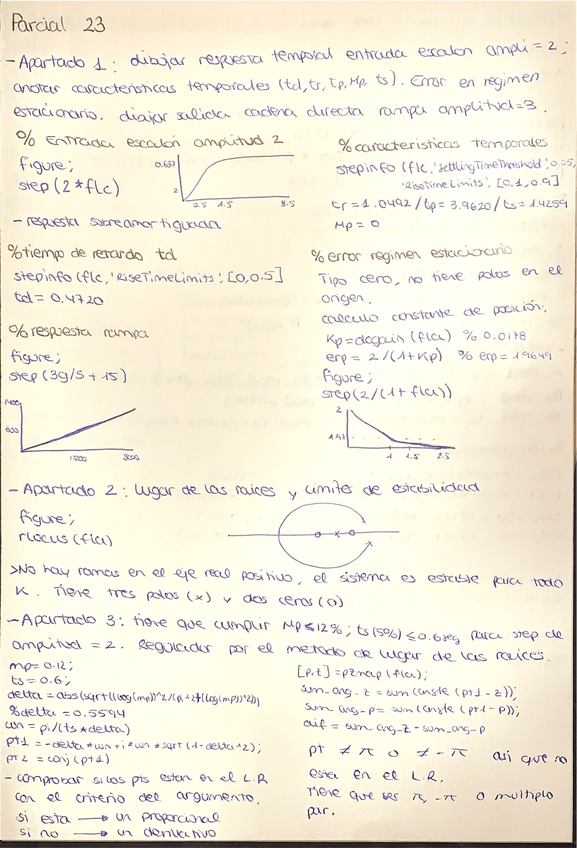 Parcial 23
- Apartado 1: dibujar respuesta temporal entrada escalon ampli = 2;
anotar caracteristicas temporales (td, tr, tp, Mp, ts). Error en regimen
estacionario. dibujar salida cadena directa rampa amplitud=3.
% Entrada escalon amplitud 2
figure;
step(2*flc)
0.637
2
0.5 1.5 3.5
- respuesta sobreamortiguada
% caracteristicas temporales
stepinfo (flc, 'SettlingTimeThreshold', 0.05,
'RiseTimeLimits', [0.1, 0.9]
tr=1.0492 / tp= 3.9620 / ts= 1.4259
Mp= 0
% tiempo de retardo td
stepinfo (flc, 'RiseTimeLimits', [0, 0.5]
td= 0.4720
% error regimen estacionario
Tipo cero, no tiene polos en el
origen.
calculo constante de posición.
Kp=dcgain (fla) % 0.0178
erp = 2/(1+Kp) % erp= 1.9649
figure;
step(2/(1+fla))
2
1.97
1 1.5 2.5
% respuesta rampa
figure;
step (3g/s + 15)
1500 3000
- Apartado 2: lugar de las raices y limites de estabilidad
figure;
rlocus (fla)
>No hay ramas en el eje real positivo, el sistema es estable para todo
K. Tiene tres polos (x) y dos ceros (o)
- Apartado 3: tiene que cumplir Mp≤12%; ts(5%) ≤0.6seg para step de
amplitud = 2. Regulador por el metodo de lugar de las raices.
mp= 0.12;
ts= 0.6;
delta = abs(sqrt((log(mp))^2/(pi^2+(log(mp))^2))
% delta = 0.5594
wn = pi/(ts*delta)
pt1 = -delta*wn+i*wn*sqrt(1-delta^2);
pt2 = conj(pt1)
- comprobar si los pts estan en el L.R
con el criterio del argumento.
si esta → un proporcional
si no → un derivativo
[p,z] =pzmap (fla);
sum_ang_z = sum (angle (pt1-z));
sum_ang_p= sum (angle (pt1-p));
dif = sum_ang_z - sum_ang_p
pt ≠ π o ≠ -π asi que no
esta en el L.R.
Tiene que ser π, -π o multiplo
par.